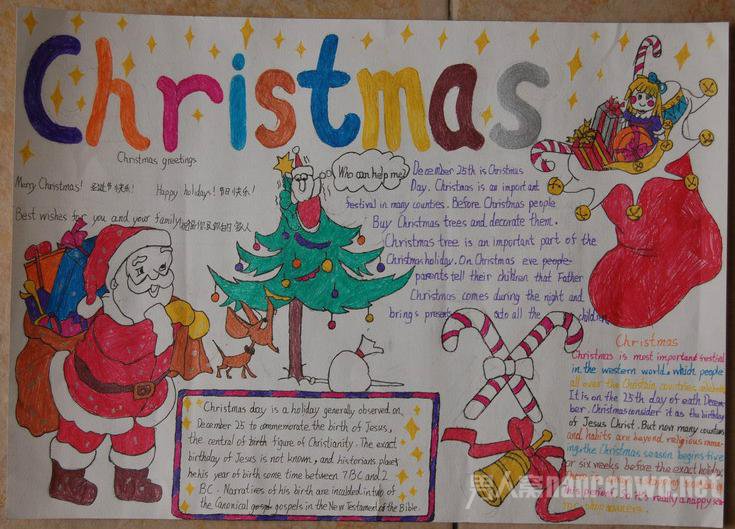 Christmas
Christmas greetings
Merry Christmas! 圣诞节快乐! Happy holidays! 节日快乐!
Best wishes for you and your family
Who can help me?
December 25th is Christmas
Day. Christmas is an important
festival in many counties. Before Christmas people
Buy Christmas trees and decorate them.
Christmas tree is an important part of the
Christmas holiday. On Christmas eve people
parents tell their children that Father
Christmas comes during the night and
brings presents to all the children
Christmas day is a holiday generally observed on
December 25 to commemorate the birth of Jesus,
the central of birth figure of Christianity. The exact
birthday of Jesus is not known, and historians places
he his year of birth some time between 7BC and 2
BC. Narratives of his birth are included in two of
the Canonical gospels in the New Testament of the Bible.
Christmas
Christmas is most important festival
in the western world. which people
all over the Christain countries celebrate
It is on the 25th day of eath Decem
ber. Christmas consider it as the birthday
of Jesus Christ. But now many countries
and habits are beyond religious mea
ing, the Christmas season begins five
or six weeks before the exact holiday
this period so it's really a happy
男人窝 nanrenwo.net